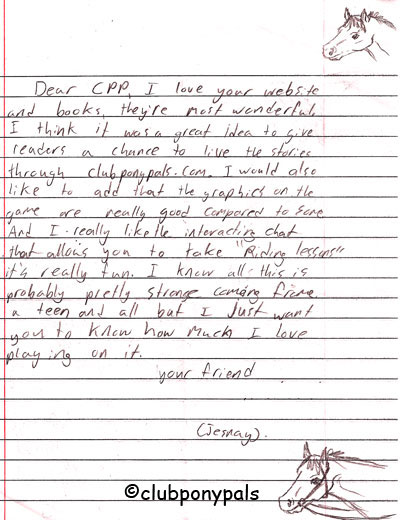 Dear CPP, I love your website
and books, they're most wonderful.
I think it was a great idea to give
readers a chance to live the stories
through clubponypals.com. I would also
like to add that the graphics on the
game are really good compared to some.
And I really like the interacting chat
that allows you to take "Riding lessons"
it's really fun. I know all this is
probably pretty strange coming from
a teen and all but I Just want
you to know how much I love
playing on it.
your friend
(Jesnay).
©clubponypals